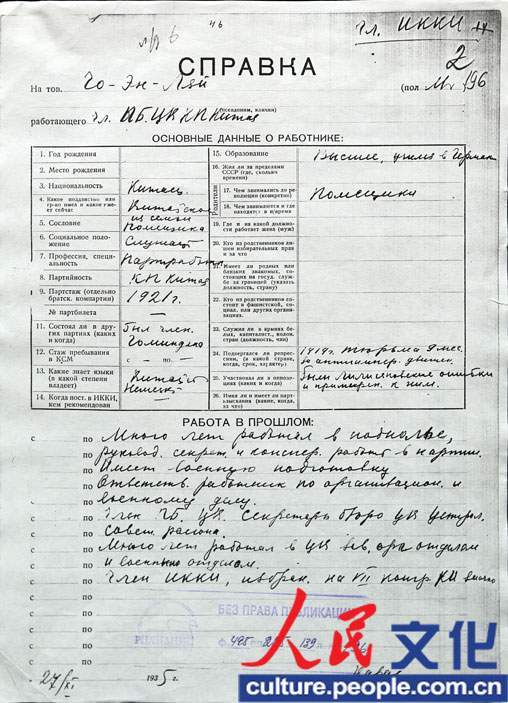 46
Чл. ИККИ
2
СПРАВКА
На тов. Чо-Эн-Лай (пол М.) 196
работающего Чл. П.Б. ЦК КП Китая
(псевдоним, клички)
ОСНОВНЫЕ ДАННЫЕ О РАБОТНИКЕ:
1. Год рождения
2. Место рождения
3. Национальность Китаец
4. Какое подданство или гр-ство имел и какое имеет сейчас Китайское
5. Сословие из семьи помещика
6. Социальное положение Служащ
7. Профессия, специальность Партработн
8. Партийность КП Китая
9. Партстаж (отдельно братск. компартии) 1921 г.
№ партбилета
11. Состоял ли в других партиях (каких и когда) Был член Гоминдана
12. Стаж пребывания в КСМ с — по —
13. Какие знает языки (в какой степени владеет) Китайск Немецк
14. Когда пост. в ИККИ, кем рекомендован
15. Образование Высшее, учился в Герман
16. Жил ли за пределами СССР (где, сколько времени)
Родители
17. Чем занимались до революции (конкретно) Помещики
18. Чем занимаются и где находятся в н/время
19. Где и на какой должности работает жена (муж)
20. Кто из родственников лишен избирательных прав и за что
21. Имеет ли родных или близких знакомых, состоящих на госуд. службе за границей (указать должность, страну)
22. Кто из родственников состоит в фашистской, социал. или других организациях.
23. Служил ли в армиях белых, капиталист., колон. стран (должность, чин)
24. Подвергался ли репрессии, (в какой стране, когда, срок, характер) 1919 г. тюрьма 9 мес. за антиимпер. движен.
25. Участвовал ли в оппозициях (каких и когда) были лилисановские ошибки и примирен. к ним.
26. Имел ли и имеет ли партвзыскания (какие, когда, за что)
РАБОТА В ПРОШЛОМ:
с по Много лет работал в подполье,
с по руковод. секретн. и конспир. работ в партии.
с по Имеет военную подготовку
с по Ответств. работник по организацион. и
с по военному делу.
с по Член ПБ. ЦК. Секретарь бюро ЦК централ.
с по Совет. района.
с по Много лет работал в ЦК зав. орготделом
с по и военным отделом.
с по Член ИККИ, избран. на VII конгр. КИ
с по
с по БЕЗ ПРАВА ПУБЛИКАЦИИ
с по
с по
27/XI 1935 г.
人民文化
culture.people.com.cn